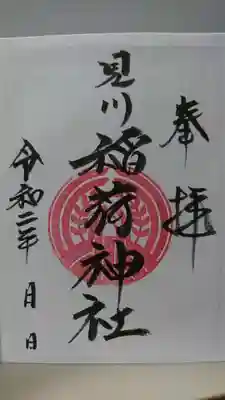 奉拝
見川稲荷神社
令和二年 月 日